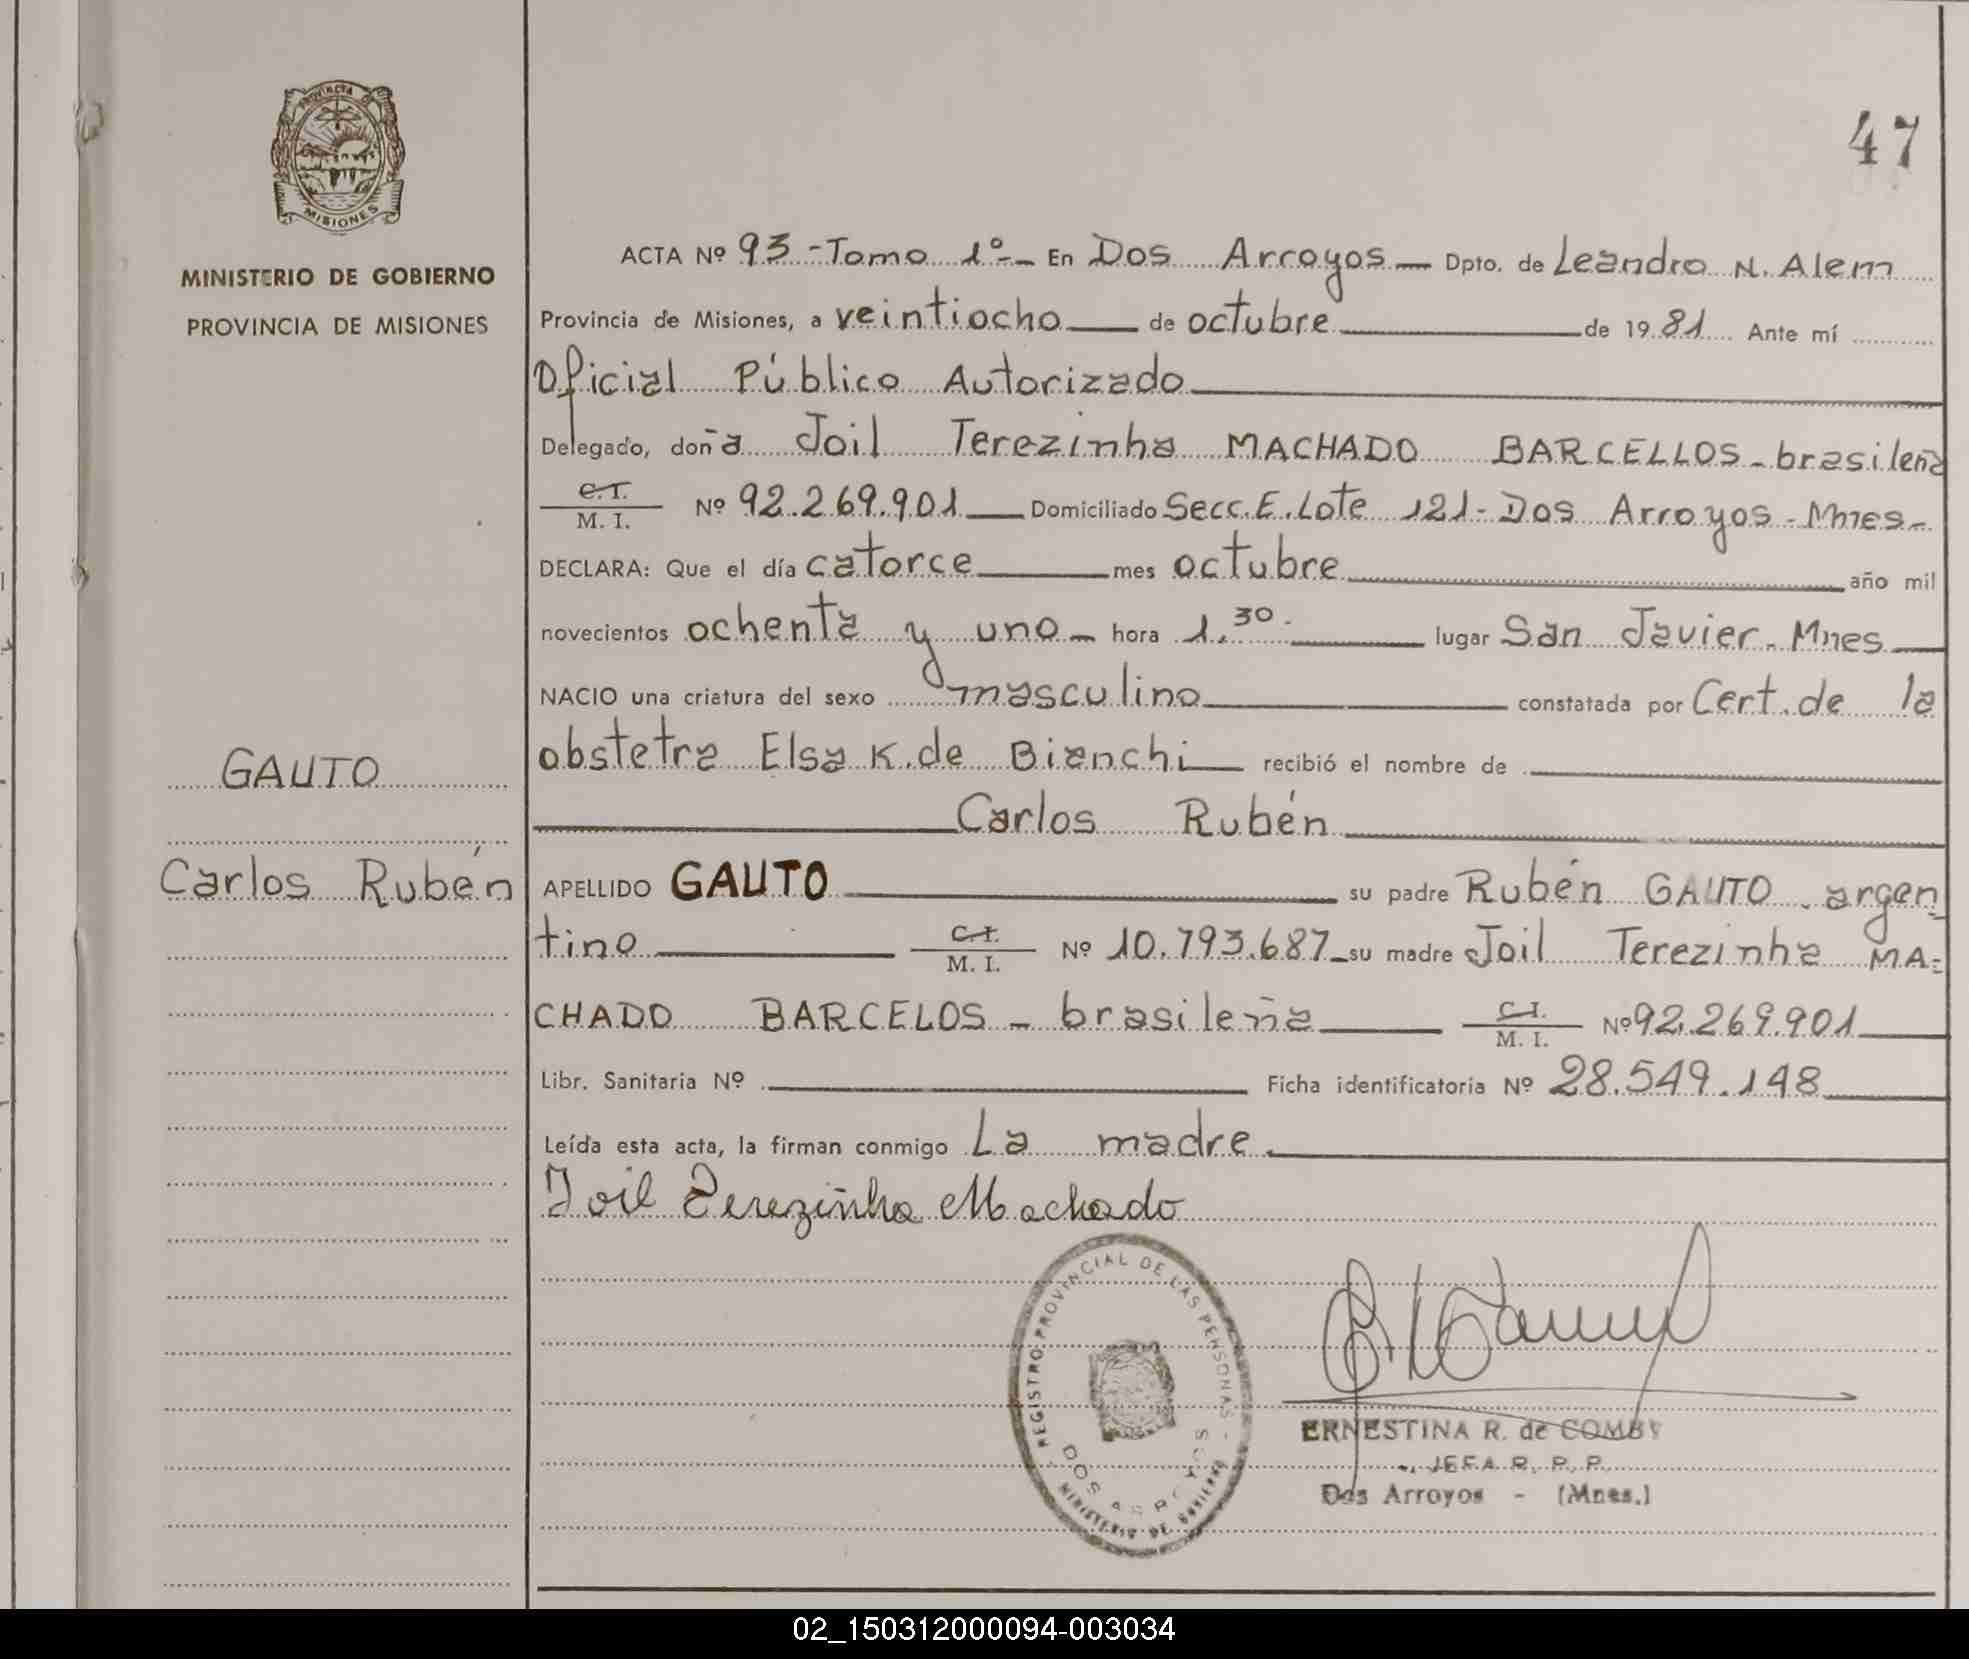 PROVINCIA DE
MISIONES
MINISTERIO DE GOBIERNO
PROVINCIA DE MISIONES
GAUTO
Carlos Rubén
47
ACTA Nº 93 - Tomo 1º - En Dos Arroyos Dpto. de Leandro N. Alem
Provincia de Misiones, a veintiocho de octubre de 1981 Ante mí
Oficial Público Autorizado
Delegado, doña Joil Terezinha MACHADO BARCELLOS - brasileña
C.I.
M. I.
Nº 92.269.901 Domiciliado Secc. E. Lote 121 - Dos Arroyos - Mnes -
DECLARA: Que el día catorce mes octubre año mil
novecientos ochenta y uno hora 1.30 lugar San Javier - Mnes
NACIO una criatura del sexo masculino constatada por Cert. de la
obstetra Elsa K. de Bianchi recibió el nombre de
Carlos Rubén
APELLIDO GAUTO su padre Rubén GAUTO - argen
tino C.I. M. I. Nº 10.793.687 su madre Joil Terezinha MA=
CHADO BARCELOS - brasileña C.I. M. I. Nº 92.269.901
Libr. Sanitaria Nº Ficha identificatoria Nº 28.549.148
Leída esta acta, la firman conmigo La madre
Joil Terezinha Machado
REGISTRO PROVINCIAL DE LAS PERSONAS
DOS ARROYOS
MINISTERIO DE GOBIERNO
ERNESTINA R. de
JEFA R. P. P.
Dos Arroyos - (Mnes.)
02_150312000094-003034